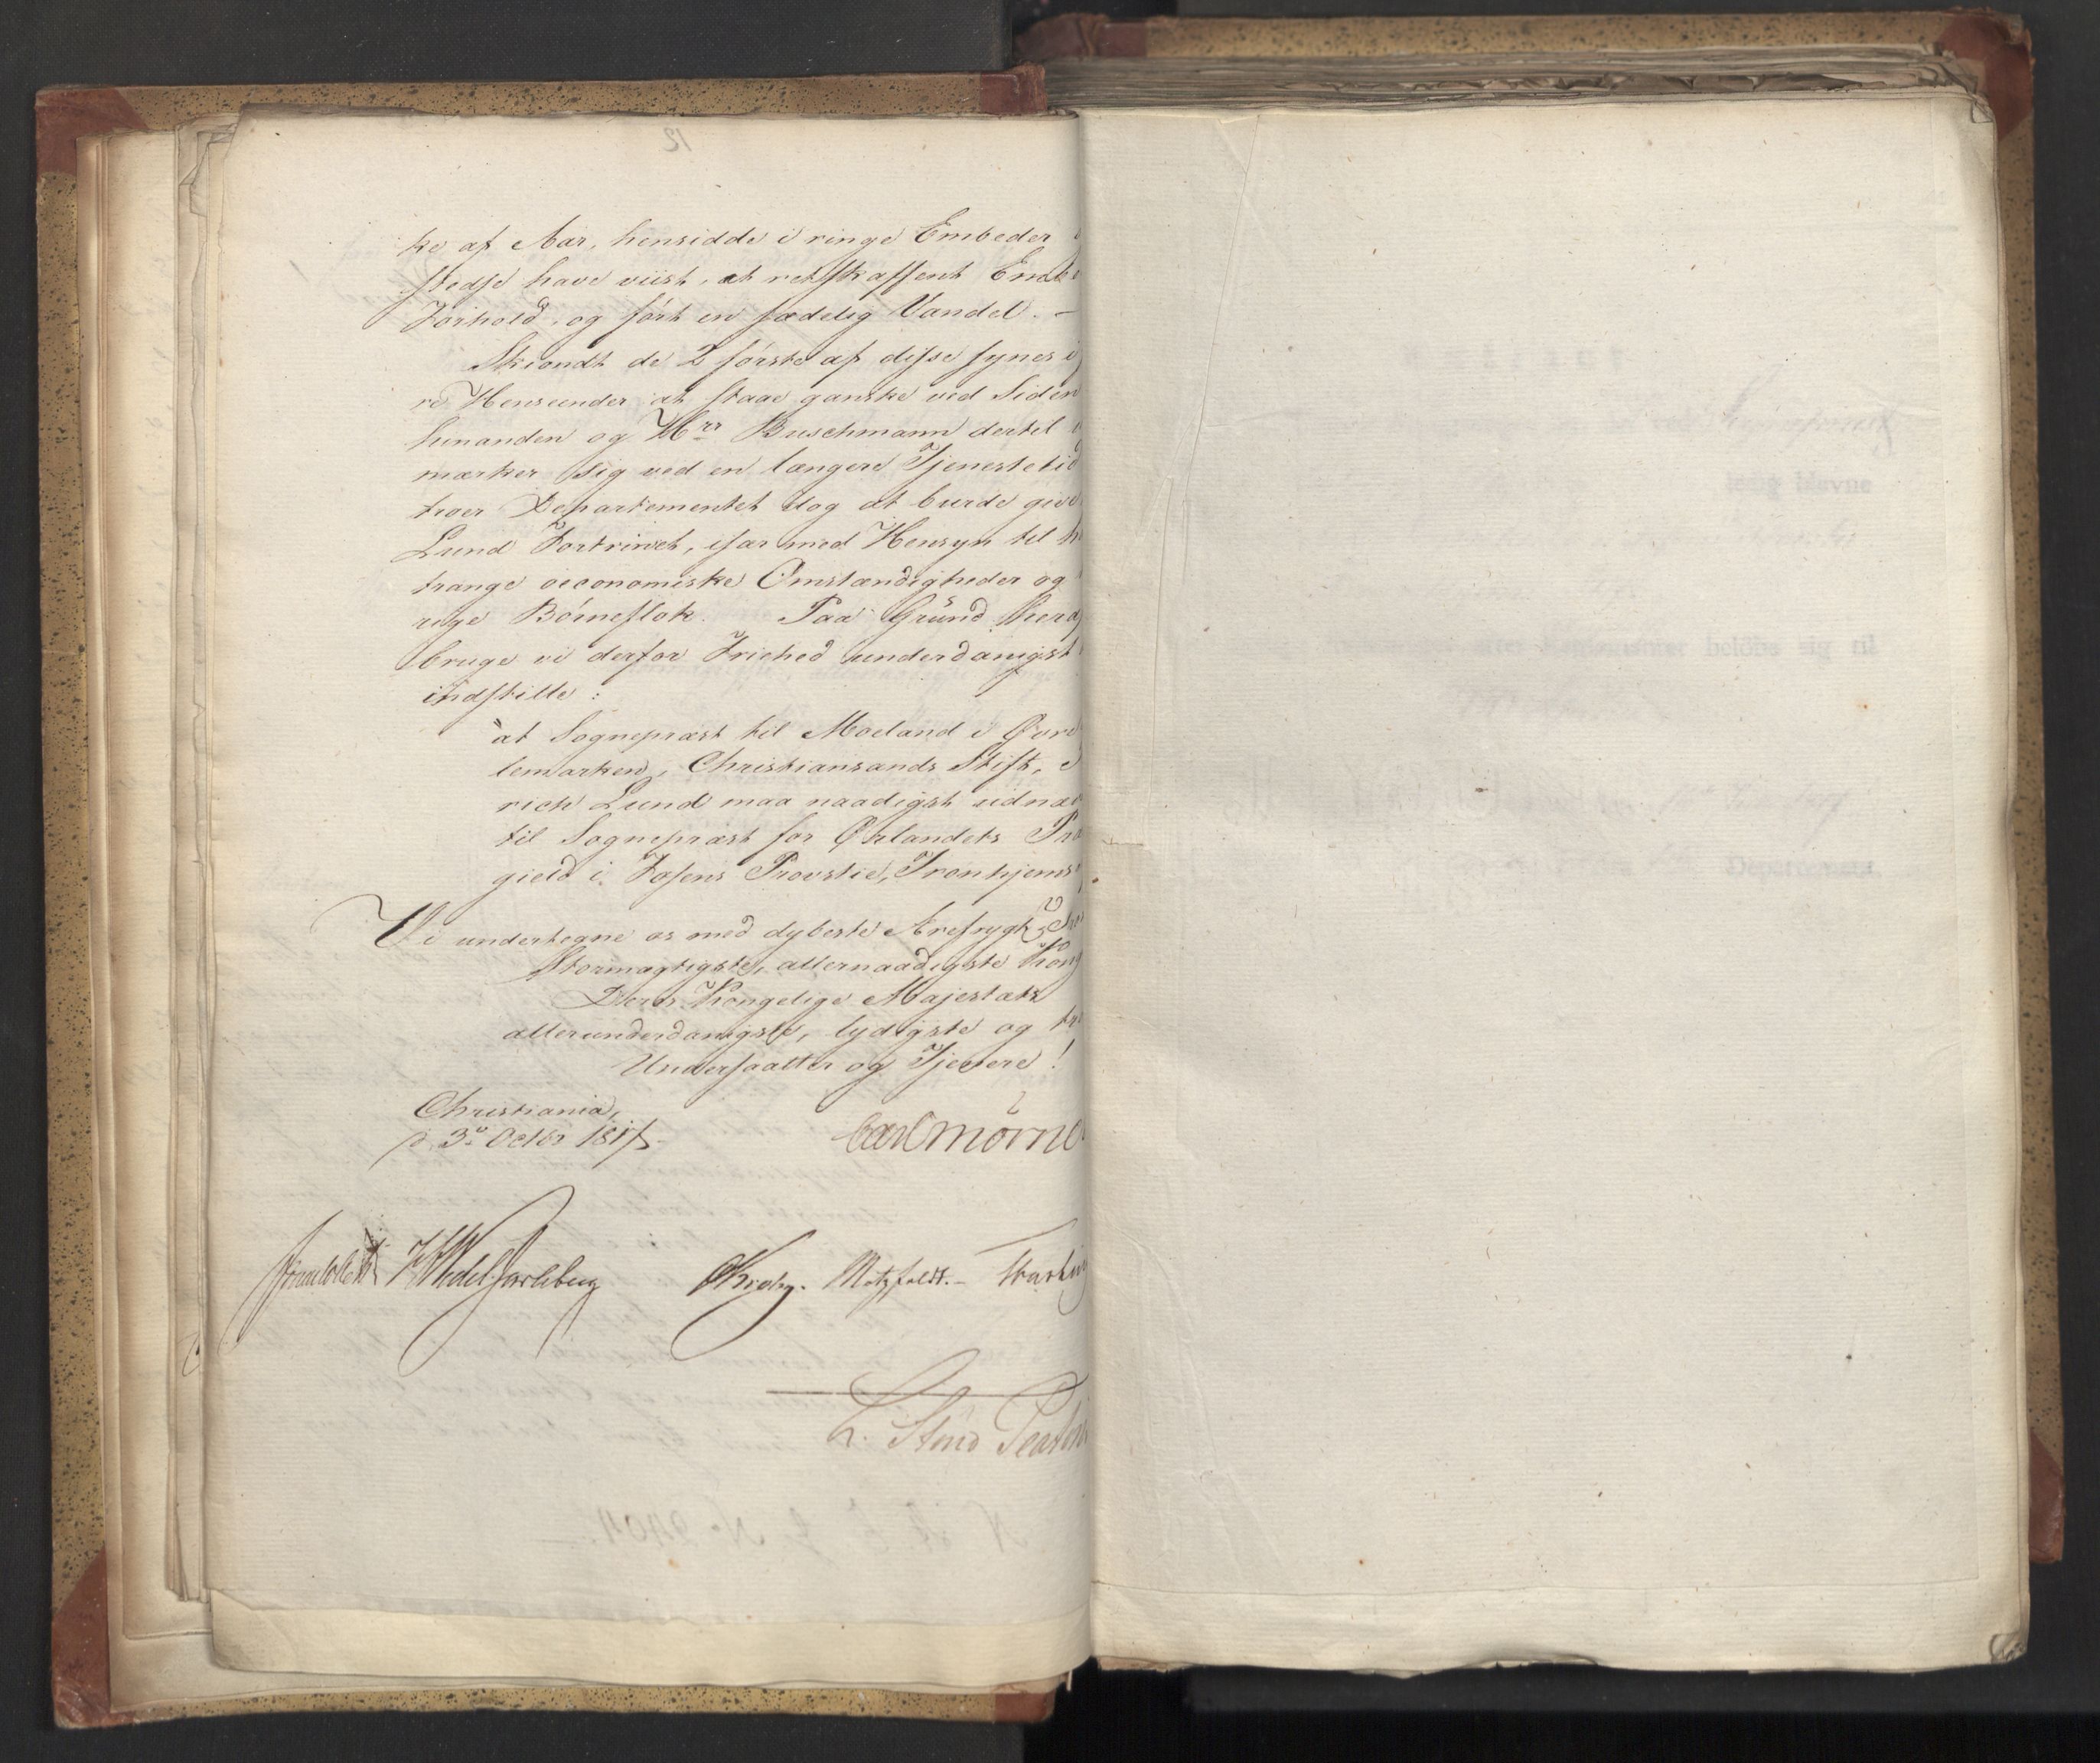 ke af Aar, hensidde i ringe Embeder
stedse have viist, et retskaffent Embe
Forhold, og ført en sædelig Vandel. –
Skiøndt de 2 første af disse synes i
re Henseender at staae ganske ved Siden
hinanden og Hrr Buschmann dertil
mærker sig ved en længere Tjenestetid
troer Departementet dog at burde give
Lund Fortrinet, især med Hensyn til h
trange oeconomiske Omstændigheder og
rige Børneflok. Paa Grund heraf
bruge vi derfor Friehed underdanigst
indstille:
"at Sognepræst til Moeland i Øvre
lemarken, Christiansands Stift,
rich Lund maa naadigst udnæ
til Sognepræst for Ørlandets Præ
gield i Fosens Provstie, Tronhjems
Vi undertegne os med dybeste Ærefrygt,
Stormægtigste, allernaadigste Kong
Deres Kongelige Majestæts
allerunderdanigste, lydigste og tro
Undersaatter og Tjenere!
Christiania,
d. 3e Octbr 1817.
Carl Mörne
Sommerhielm HWedel Jarlsberg Krohg. Motzfeldt.–
L. Stoud Platou